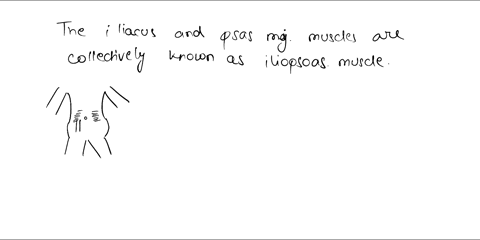 The iliacus and psas mj. muscles are
collectively known as iliopsoas muscle.